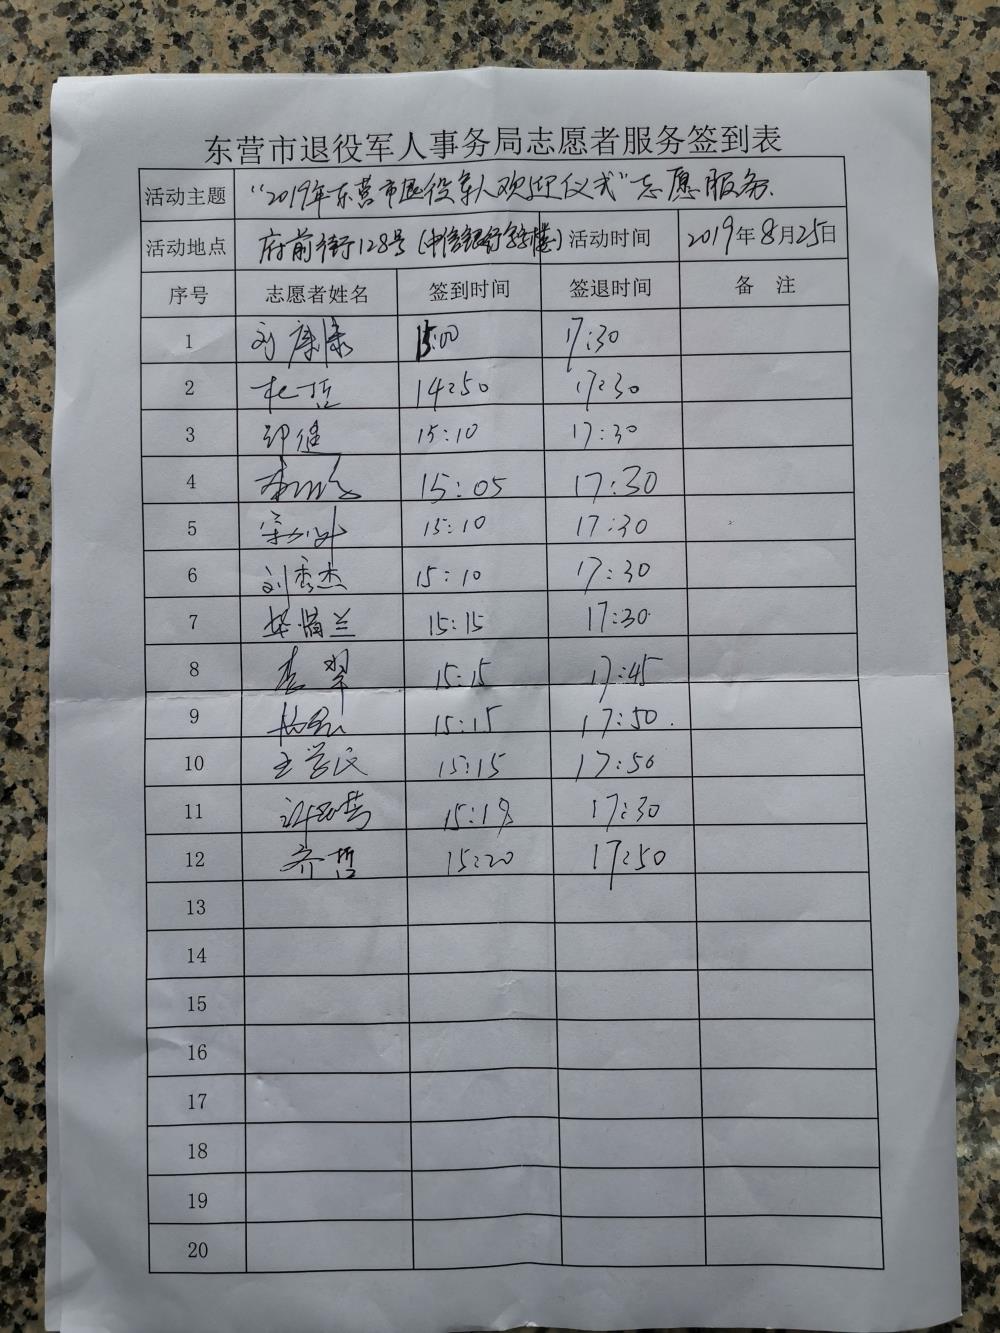 东营市退役军人事务局志愿者服务签到表
活动主题 “2019年东营市退役军人欢迎仪式”志愿服务.
活动地点 府前街128号(中信银行写字楼) 活动时间 2019年8月25日
序号 志愿者姓名 签到时间 签退时间 备 注
1 刘康康 15:00 17:30
2 杜哲 14:50 17:30
3 15:10 17:30
4 15:05 17:30
5 15:10 17:30
6 刘秀杰 15:10 17:30
7 兰 15:15 17:30
8 李翠 15:15 17:45
9 15:15 17:50
10 王学民 15:15 17:50
11 15:19 17:30
12 齐哲 15:20 17:50
13
14
15
16
17
18
19
20